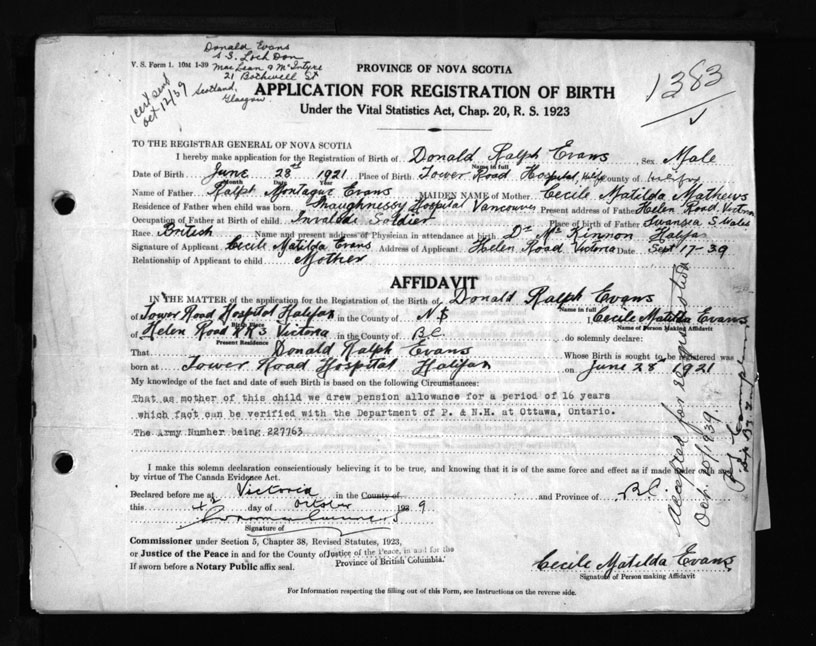 Donald Evans
S S. Loch Don
V. S. Form 1. 10M 1-39 MacLean & McIntyre
21 Bothwell St
Scotland, Glasgow
1 cert send
Oct 12/39
1383
PROVINCE OF NOVA SCOTIA
APPLICATION FOR REGISTRATION OF BIRTH
Under the Vital Statistics Act, Chap. 20, R. S. 1923
TO THE REGISTRAR GENERAL OF NOVA SCOTIA
I hereby make application for the Registration of Birth of Donald Ralph Evans Sex Male
Name in full
Date of Birth June 28th 1921 Place of Birth Tower Road Hospital, Hlfx County of Halifax
Month Date Year
Name of Father Ralph Montague Evans MAIDEN NAME of Mother Cecile Matilda Mathews
Residence of Father when child was born Shaughnessy Hospital Vancouver Present address of Father Helen Road, Victoria
Occupation of Father at Birth of child Invalid Soldier Place of Birth of Father Swansea S. Wales
Race British Name and present address of Physician in attendance at birth Dr McKinnon Halifax
Signature of Applicant Cecile Matilda Evans Address of Applicant Helen Road, Victoria Date Sept 17-39
Relationship of Applicant to child Mother
AFFIDAVIT
IN THE MATTER of the application for the Registration of the Birth of Donald Ralph Evans
Name in full
of Tower Road Hospital Halifax in the County of N S I Cecile Matilda Evans
Birth Place Name of Person Making Affidavit
of Helen Road RR3 Victoria in the County of B.C. do solemnly declare:
Present Residence
That Donald Ralph Evans Whose Birth is sought to be registered was
born at Tower Road Hospital Halifax on June 28th 1921
My knowledge of the fact and date of such Birth is based on the following Circumstances:
That as mother of this child we drew pension allowance for a period of 16 years
which fact can be verified with the Department of P. & N.H. at Ottawa, Ontario.
The Army Number being 227763
I make this solemn declaration conscientiously believing it to be true, and knowing that it is of the same force and effect as if made under oath and
by virtue of The Canada Evidence Act.
Declared before me at Victoria in the County of and Province of B.C.
this 4th day of October 1939
Signature of
Commissioner under Section 5, Chapter 38, Revised Statutes, 1923,
or Justice of the Peace in and for the County of Justice of the Peace, in and for the
Province of British Columbia.
If sworn before a Notary Public affix seal.
Cecile Matilda Evans
Signature of Person making Affidavit
For Information respecting the filling out of this Form, see Instructions on the reverse side.
Accepted for registration
Oct. 10/1939.